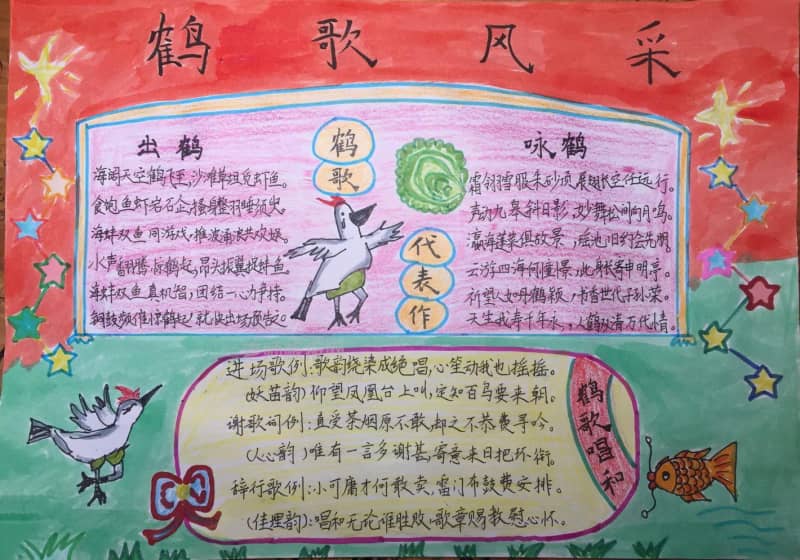 鹤歌风采
出鹤
海阔天空鹤飞至,沙滩草坦觅虾鱼。
食饱鱼虾岩石企,搔身整羽睡须臾。
海蚌双鱼同游戏,推波涌浪共欢娱。
水声翻腾惊鹤起,昂头披翼捉蚌鱼。
海蚌双鱼真机智,团结一心力争持。
铜鼓频催惊鹤起,就快出场预告
鹤歌
代表作
咏鹤
霜翎雪服朱砂顶,展翅长空任远行。
声动九皋斜日影,松间月鸣。
瀛海蓬莱俱故景,
云游四海何憧憬,此身长寄申明亭。
祈望人如丹鹤颖,书香世代子孙荣。
天生我寿千年永,人鹤双清万代情。
进场歌例:歌韵烧染成绝唱,心笙动我也摇摇。
(妖苗韵)仰望凤凰台上叫,定知百鸟要来朝。
谢歌词例:直受茶烟原不敢,却之不恭费寻吟。
(人心韵)唯有一言多谢甚,寄意来日把环衔。
辞行歌例:小可庸才何敢卖,雷门布鼓费安排。
(佳理韵):唱和无论谁胜败,歌章赐教慰心怀。
鹤歌唱和